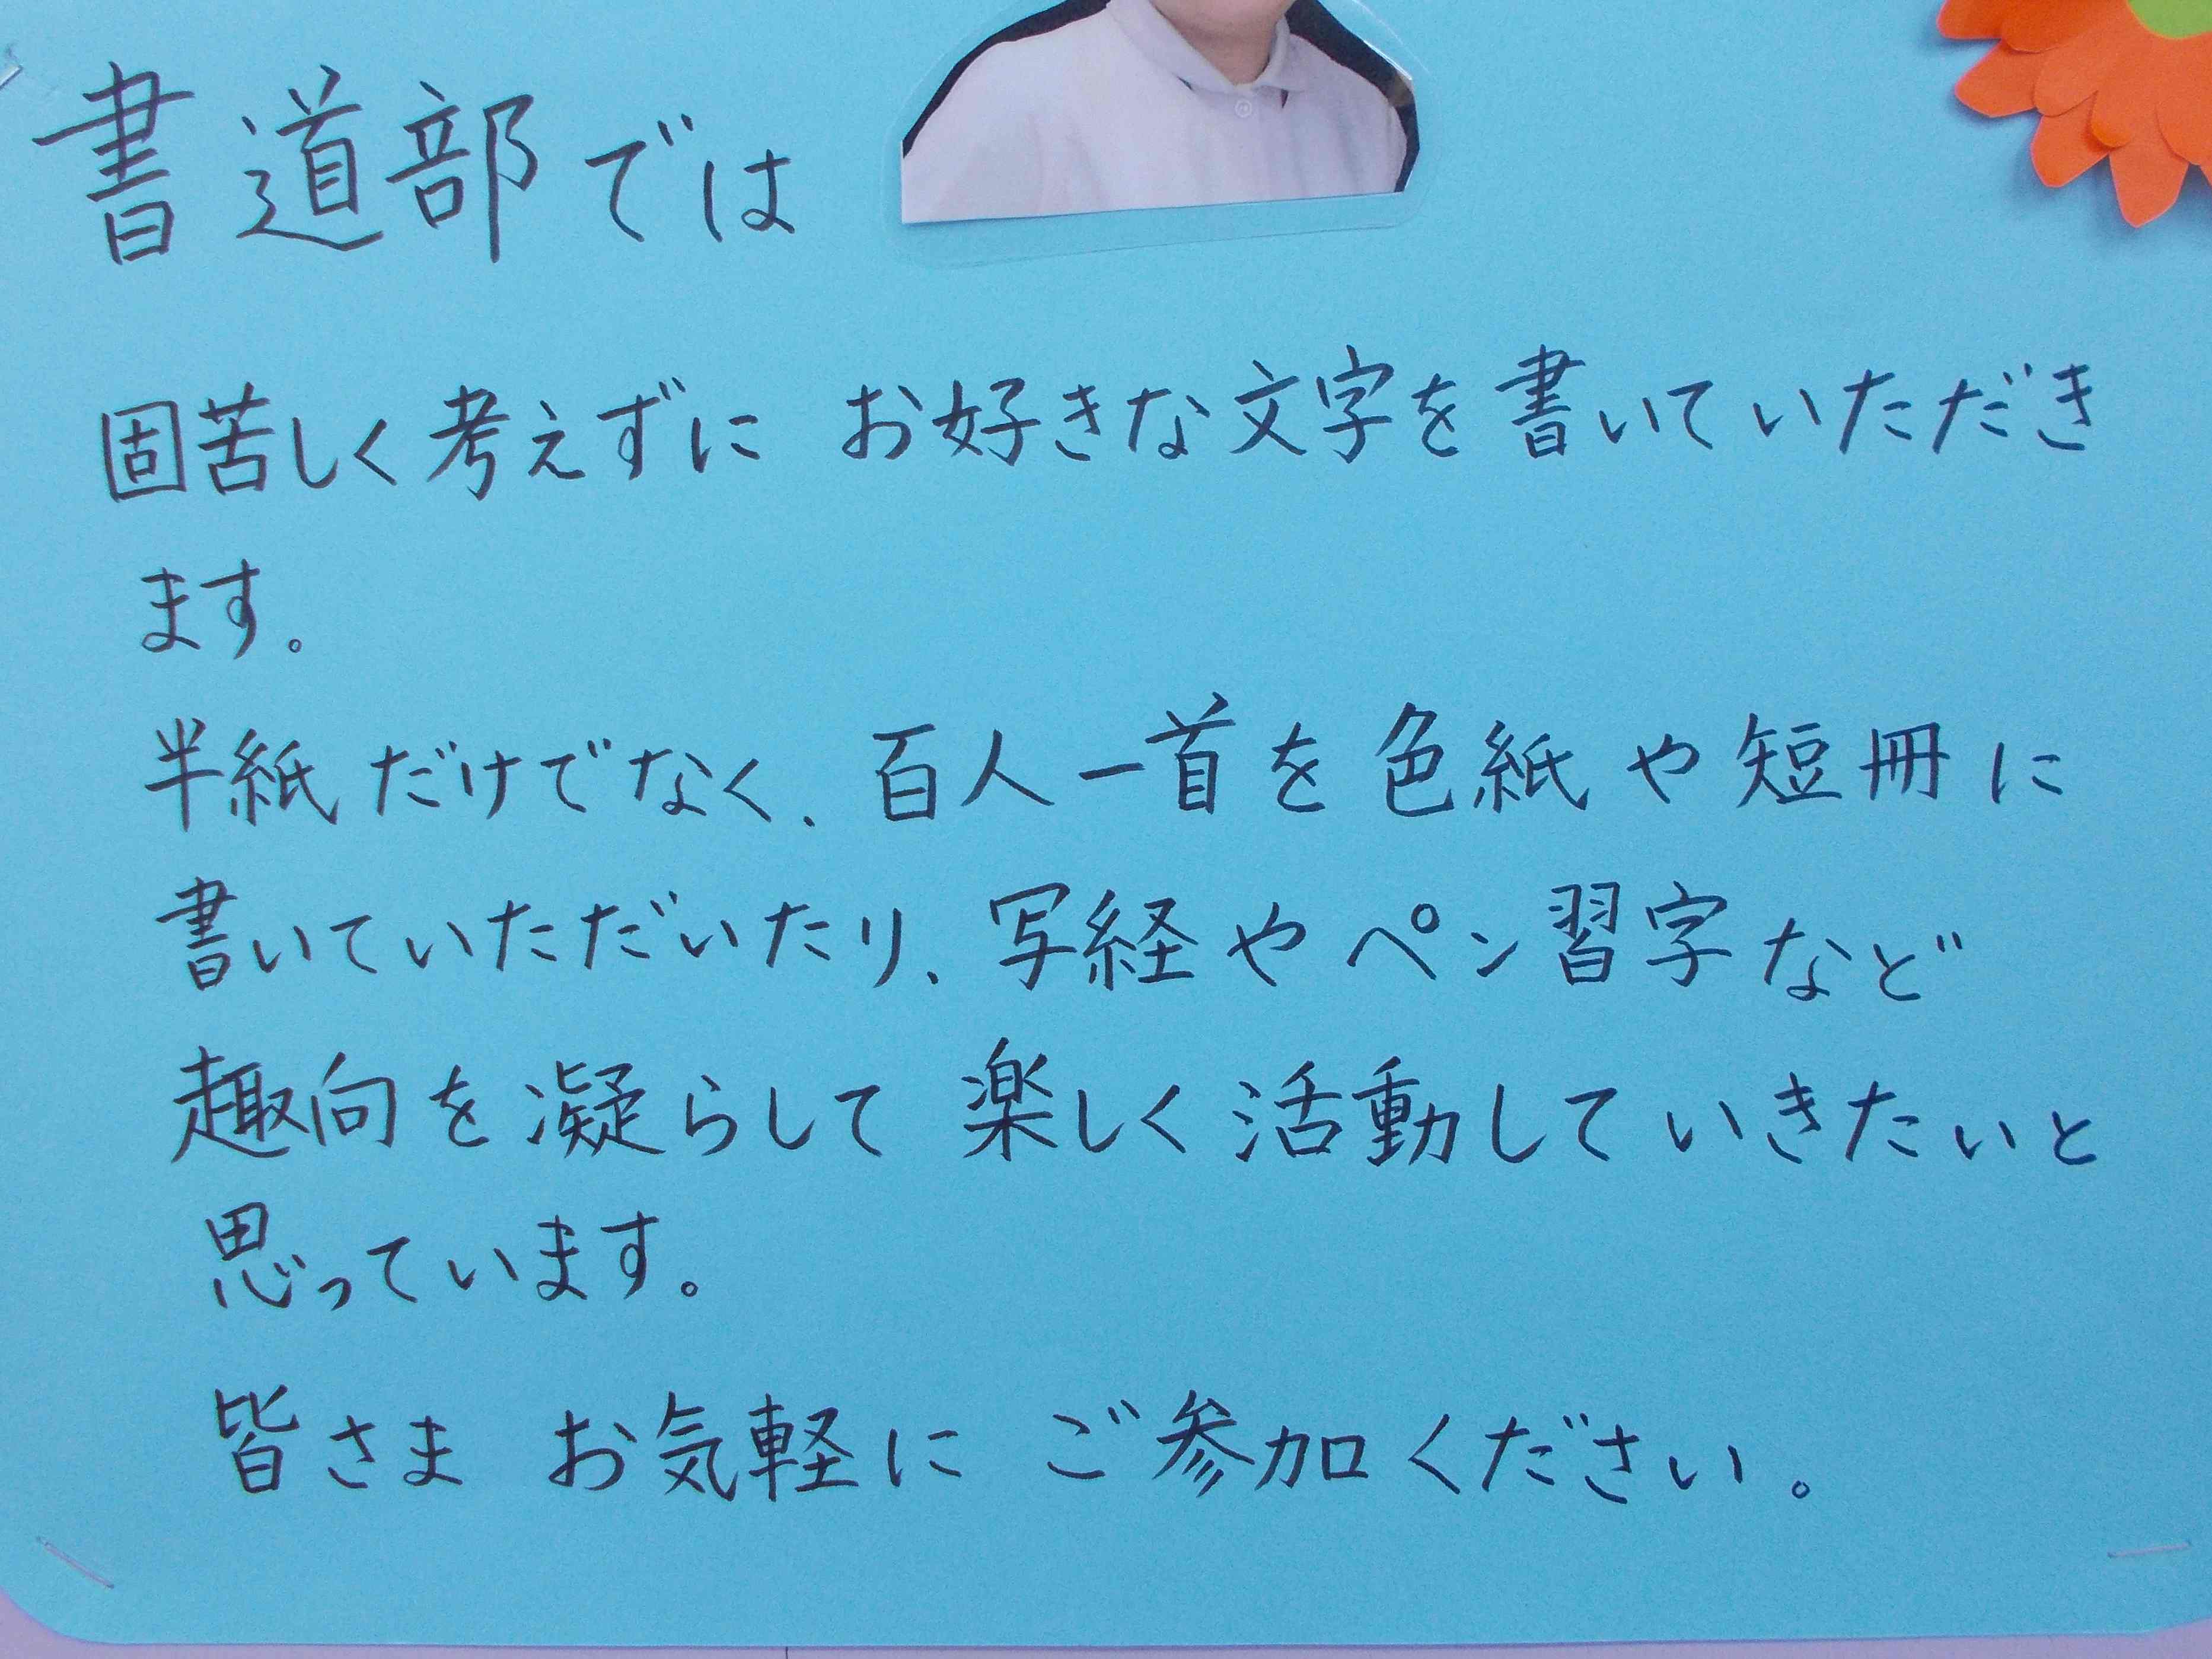 書道部では
固苦しく考えずに お好きな文字を書いていただき
ます。
半紙だけでなく、百人一首を色紙や短冊に
書いていただいたり、写経やペン習字など
趣向を凝らして 楽しく活動していきたいと
思っています。
皆さま お気軽に ご参加ください。